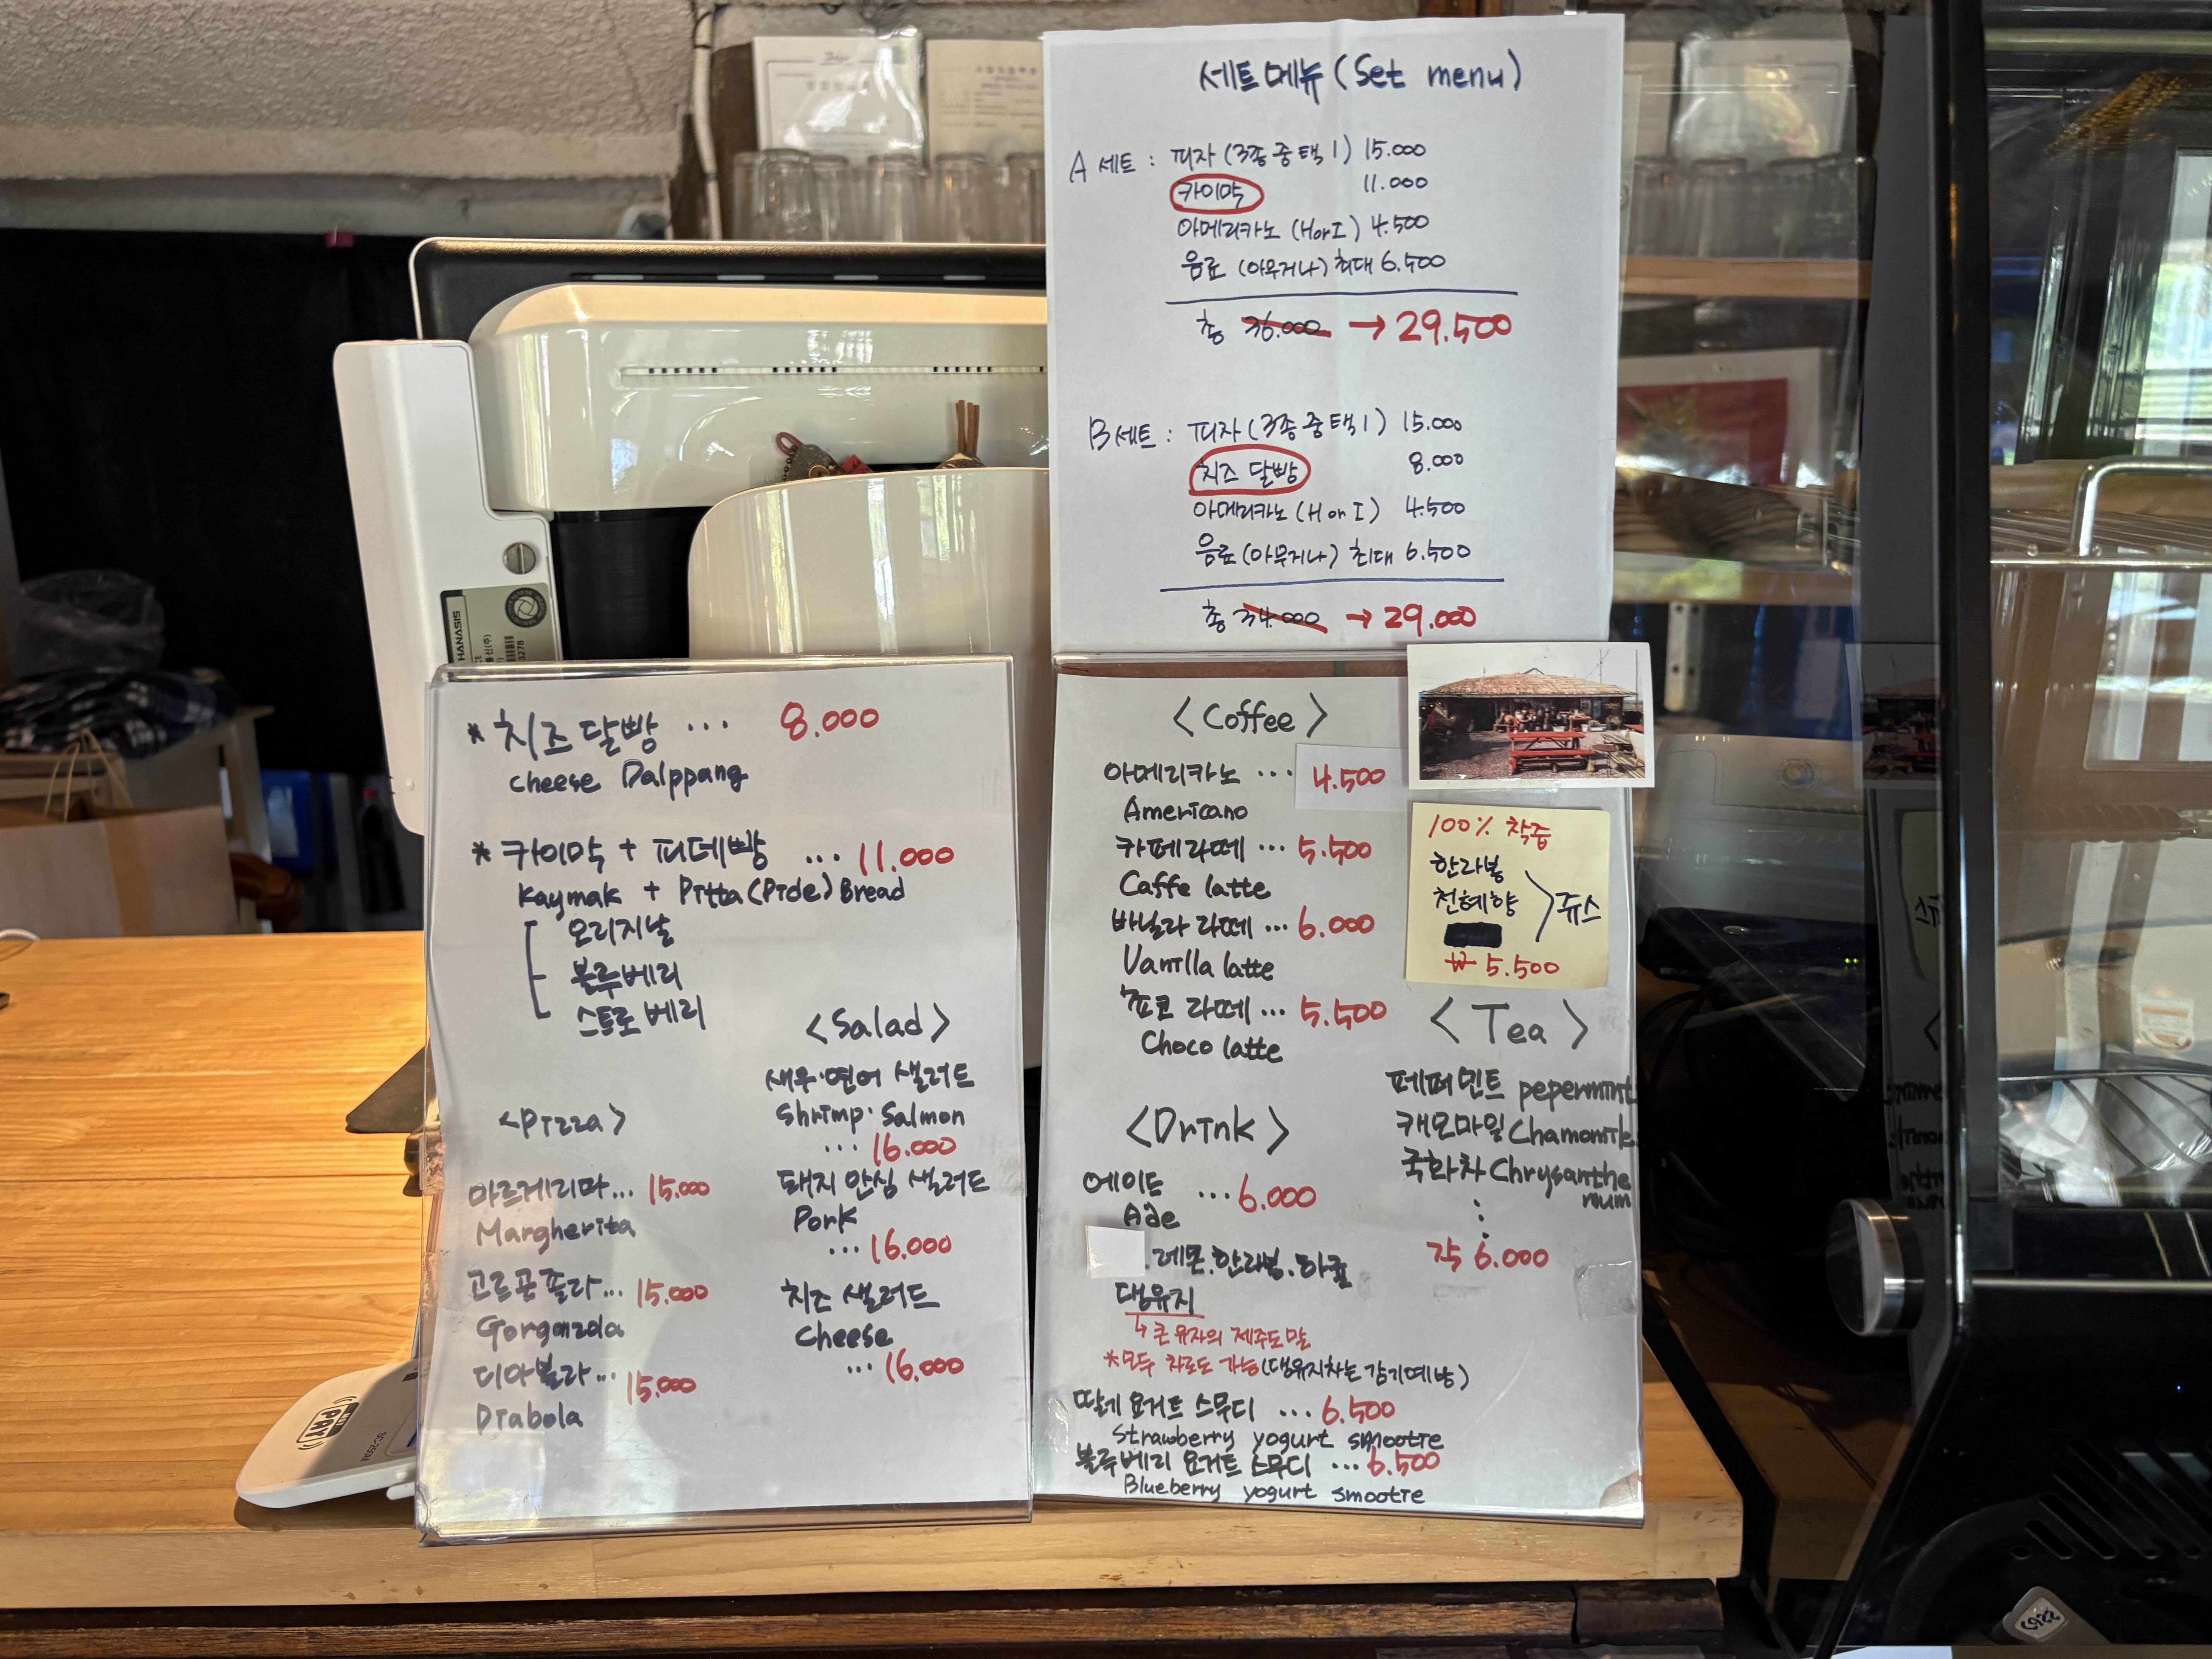 세트메뉴 (Set menu)
A 세트 : 피자 (3종 중 택1) 15.000
카이막 11.000
아메리카노 (H or I) 4.500
음료 (아무거나) 최대 6.500
총 36.000 → 29.500
B 세트 : 피자 (3종 중 택1) 15.000
치즈 달빵 8.000
아메리카노 (H or I) 4.500
음료 (아무거나) 최대 6.500
총 34.000 → 29.000
* 치즈 달빵 ... 8.000
cheese Dalppang
* 카이막 + 피데빵 ... 11.000
Kaymak + Pitta (Pide) Bread
오리지날
블루베리
스트로베리
<Pizza>
마르게리따... 15.000
Margherita
고르곤졸라... 15.000
Gorgonzola
디아볼라... 15.000
Diabola
<Salad>
새우·연어 샐러드
Shrimp·Salmon
... 16.000
돼지 안심 샐러드
Pork
... 16.000
치즈 샐러드
Cheese
... 16.000
<Coffee>
아메리카노 ... 4.500
Americano
카페라떼 ... 5.500
Caffe latte
바닐라 라떼 ... 6.000
Vanilla latte
쵸코 라떼 ... 5.500
Choco latte
100% 착즙
한라봉
천혜향
쥬스
₩ 5.500
<Tea>
페퍼민트 pepermint
캐모마일 Chamomile
국화차 Chrysanthe
mum
:
각 6.000
<Drink>
에이드 ... 6.000
Ade
.레몬.한라봉.하귤
댕유지
↳ 큰 유자의 제주도말
*모두 차로도 가능(댕유지차는 감기예방)
딸기 요거트 스무디 ... 6.500
Strawberry yogurt smootie
블루베리 요거트 스무디 ... 6.500
Blueberry yogurt smootie
HANASIS
PAY